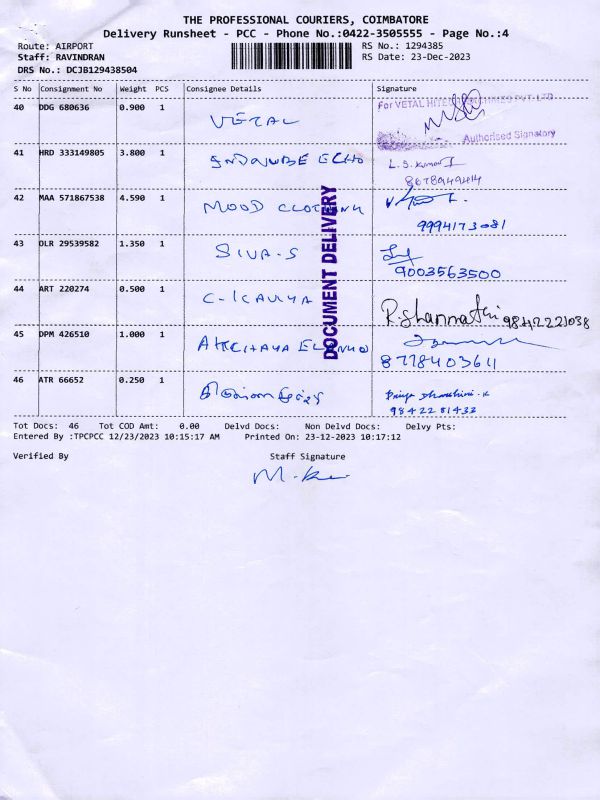 THE PROFESSIONAL COURIERS, COIMBATORE
Delivery Runsheet - PCC - Phone No.:0422-3505555 - Page No.:4
Route: AIRPORT RS No.: 1294385
Staff: RAVINDRAN RS Date: 23-Dec-2023
DRS No.: DCJB129438504
S No Consignment No Weight PCS Consignee Details Signature
40 DDG 680636 0.900 1 VETAL For VETAL
Authorised Signatory
41 HRD 333149805 3.800 1 ECHO L.S. Kumar
42 MAA 571867538 4.590 1 MOOD CLOTHING
9994173081
43 DLR 29539582 1.350 1 SIVA-S
9003563500
44 ART 220274 0.500 1 C-ICAVYA R.Shanmathi
DOCUMENT DELIVERY
45 DPM 426510 1.000 1
8778403611
46 ATR 66652 0.250 1
9842281433
Tot Docs: 46 Tot COD Amt: 0.00 Delvd Docs: Non Delvd Docs: Delvy Pts:
Entered By :TPCPCC 12/23/2023 10:15:17 AM Printed On: 23-12-2023 10:17:12
Verified By Staff Signature